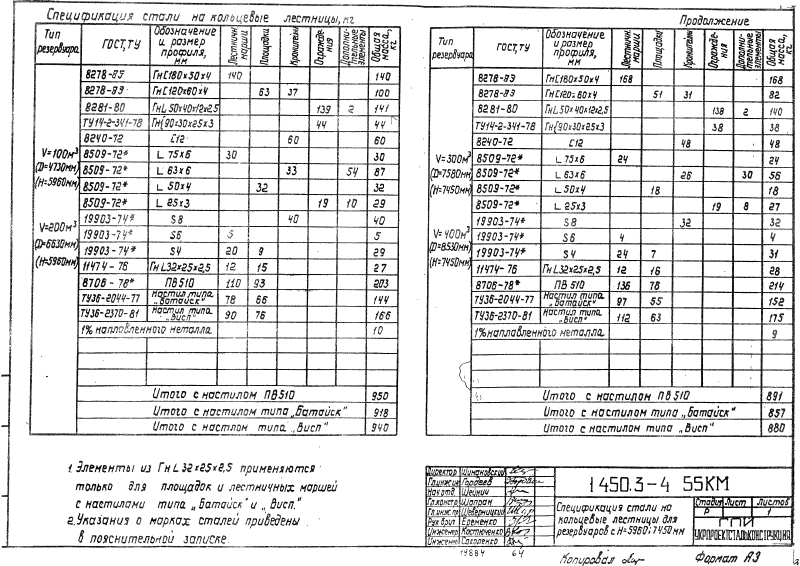 Спецификация стали на кольцевые лестницы, кг
Тип резервуара ГОСТ, ТУ Обозначение и размер профиля, мм Лестничн. марши Площадки Кронштейны Ограждения Дополнительные элементы Общая масса, кг
8278-83 Гн[180×50×4 140 140
8278-83 Гн[120×60×4 63 37 100
8281-80 ГнL50×40×12×2,5 139 2 141
ТУ14-2-341-78 Гн{90×30×25×3 44 44
8240-72 С12 60 60
V=100м³ 8509-72* L 75×6 30 30
(D=4730мм) 8509-72* L 63×6 33 54 87
(H=5960мм) 8509-72* L 50×4 32 32
8509-72* L 25×3 19 10 29
V=200м³ 19903-74* S8 40 40
(D=6630мм) 19903-74* S6 5 5
(H=5960мм) 19903-74* S4 20 9 29
11474-76 ГнL32×25×2,5 12 15 27
8706-78* ПВ510 110 93 203
ТУ36-2044-77 Настил типа „Батайск" 78 66 144
ТУ36-2370-81 Настил типа „Висп" 90 76 166
1% наплавленного металла 10
Итого с настилом ПВ510 950
Итого с настилом типа „Батайск" 918
Итого с настлом типа „Висп" 940
Продолжение
Тип резервуара ГОСТ, ТУ Обозначение и размер профиля, мм Лестничн. марши Площадки Кронштейны Ограждения Дополнительные элементы Общая масса, кг
8278-83 Гн[180×50×4 168 168
8278-83 Гн[120×60×4 51 31 82
8281-80 ГнL50×40×12×2,5 138 2 140
ТУ14-2-341-78 Гн{90×30×25×3 38 38
8240-72 С12 48 48
V=300м³ 8509-72* L 75×6 24 24
(D=7580мм) 8509-72* L 63×6 26 30 56
(H=7450мм) 8509-72* L 50×4 18 18
8509-72* L 25×3 19 8 27
19903-74* S8 32 32
V=400м³ 19903-74* S6 4 4
(D=8530мм) 19903-74* S4 24 7 31
(H=7450мм) 11474-76 ГнL32×25×2,5 12 16 28
8706-78* ПВ 510 136 78 214
ТУ36-2044-77 Настил типа „Батайск" 97 55 152
ТУ36-2370-81 Настил типа „Висп" 112 63 175
1% наплавленного металла 9
Итого с настилом ПВ510 891
Итого с настилом типа „Батайск" 857
Итого с настилом типа „Висп" 880
1. Элементы из ГнL32×25×2,5 применяются
только для площадок и лестничных маршей
с настилами типа „Батайск" и „Висп."
2. Указания о марках сталей приведены
в пояснительной записке.
Директор Шимановский
Гл.инж.ин Гордеев
Нач.отд. Шейнич
Гл.констр. Шапран
Гл.инж.пр. Шеверницкий
Рук.бриг. Еременко
Инженер Костюченко
Инженер Соколенко
1450.3-4 55КМ
Спецификация стали на
кольцевые лестницы для
резервуаров с H=5960; 7450мм
Стадия Лист Листов
Р 1
ГПИ
УКРПРОЕКТСТАЛЬКОНСТРУКЦИЯ
19884 64
Копировал Формат А3